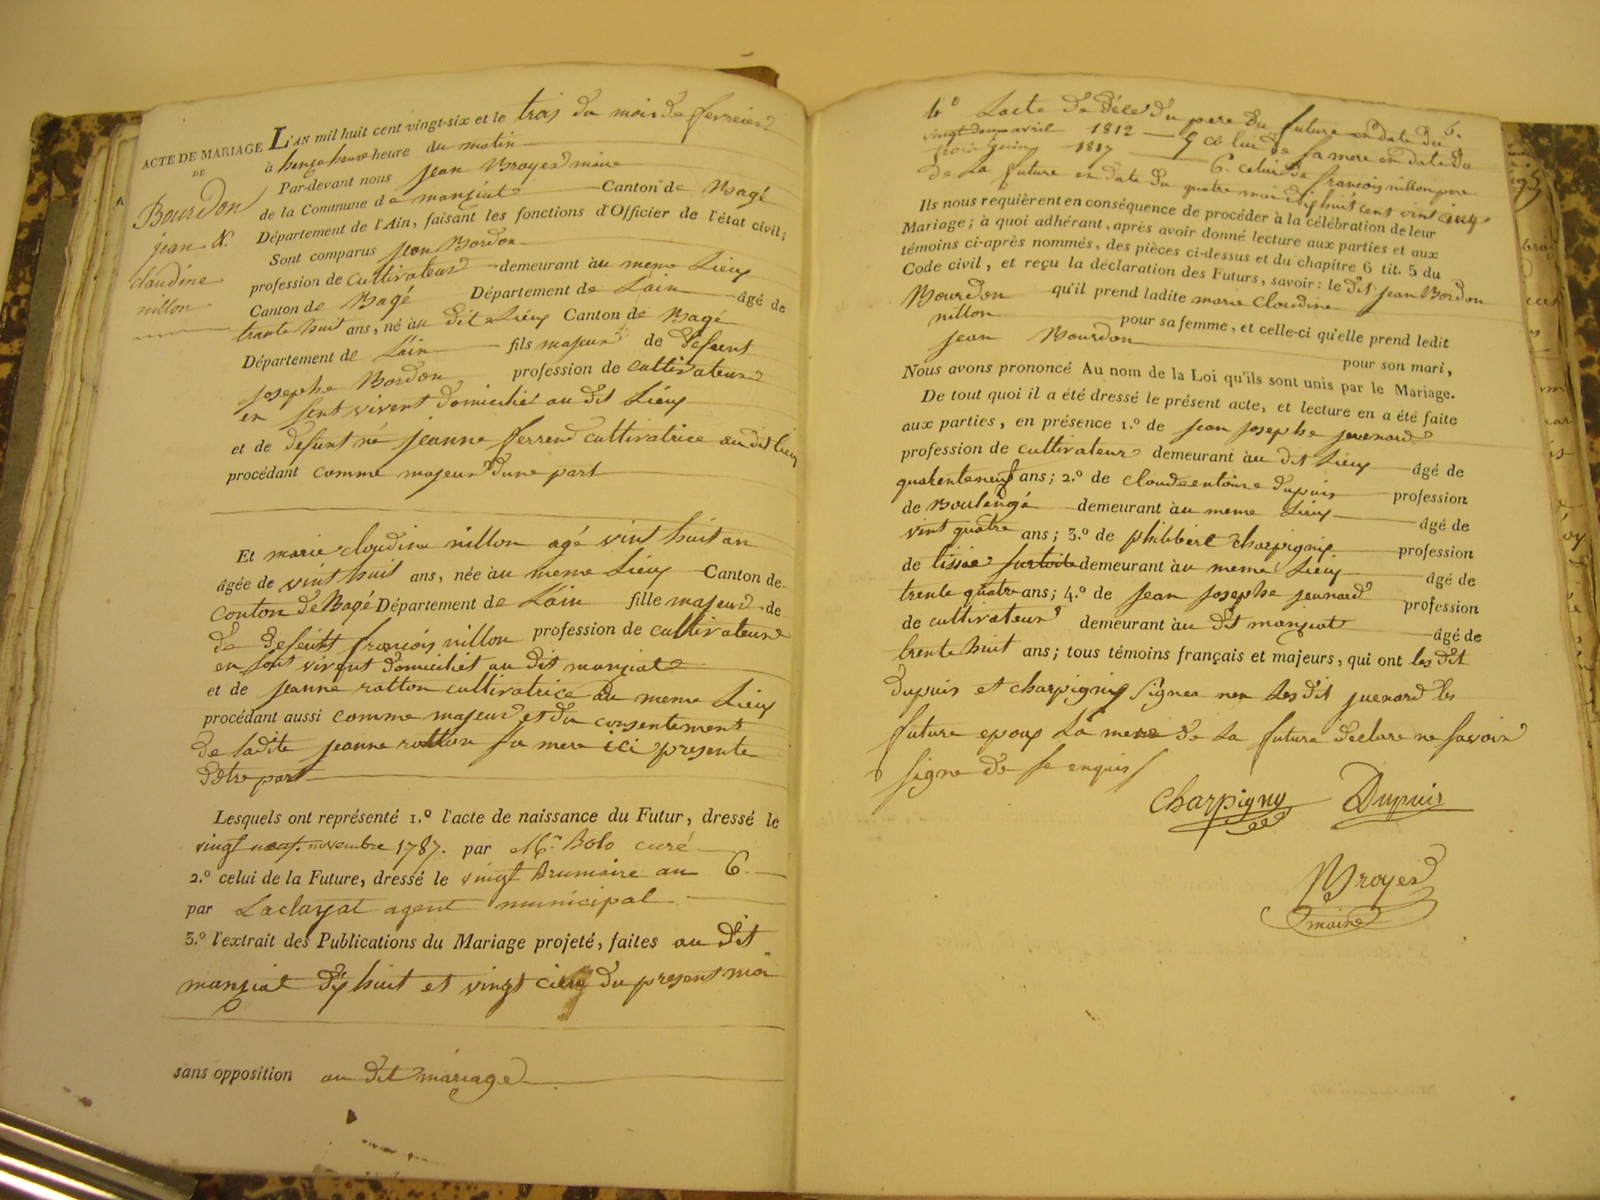 ACTE DE MARIAGE
DE
Bourdon
jean &
claudine
nillon
L'AN mil huit cent vingt-six et le trois du mois de fevreier
à heure du matin
Par-devant nous jean Broyer maire
de la Commune de manziat Canton de Bagé
Département de l'Ain, faisant les fonctions d'Officier de l'état civil;
Sont comparus jean Bordon
profession de cultivateur demeurant au meme Lieux
Canton de Bagé Département de Lain âgé de
trante huit ans, né au dit Lieux Canton de Bagé
Département de Lain fils majeur de defeunt
josephe Bordon profession de cultivateur
en sent vivent domicilié au dit Lieux
et de defunt né jeanne ferrend cultivatrice au dit lieux
procédant comme majeur dune part
Et marie cloudine nillon agé vint huit an
âgée de vint huit ans, née au meme Lieux Canton de
conton de Bagé Département de Lain fille majeur de
de defeunt françois nillon profession de cultivateur
en sont vivent domiciliet au dit manziat
et de jeanne ratton cultivatrice au meme Lieux
procédant aussi comme majeur et du consentement
de ladite jeanne ratton sa mere ici presente
dotre part
Lesquels ont représenté 1.º l'acte de naissance du Futur, dressé le
vingt neuf novembre 1787. par Mr. Bolo curé
2.º celui de la Future, dressé le vingt Brumaire an 6
par Laclayat agent municipal
3.º l'extrait des Publications du Mariage projeté, faites au dit
manziat dix huit et vingt cinq du present moi
sans opposition au dit mariage
6.
4º Lacte de décé du pere du future en date du
vingt deux avril 1812 5 celui de sa mere en date du
trois juin 1817 6. celui de françois nillon pere
de la future en date du quatre mai dix huit cent vint cinq
Ils nous requièrent en conséquence de procéder à la célébration de leur
Mariage; à quoi adhérant, après avoir donné lecture aux parties et aux
témoins ci-après nommés, des pièces ci-dessus et du chapitre 6 tit. 5 du
Code civil, et reçu la déclaration des Futurs, savoir: le dit jean Bordon
Bourdon qu'il prend ladite marie cloudine
nillon pour sa femme, et celle-ci qu'elle prend ledit
jean Bourdon pour son mari,
Nous avons prononcé Au nom de la Loi qu'ils sont unis par le Mariage.
De tout quoi il a été dressé le présent acte, et lecture en a été faite
aux parties, en présence 1.º de jean josephe juenard
profession de cultivateur demeurant au dit Lieux âgé de
quarenteneuf ans; 2.º de cloudeentoine dupuis profession
de Boulengé demeurant au meme Lieux âgé de
vint quatre ans; 3.º de philibert charpigny profession
de tissier demeurant au meme Lieux âgé de
trente quatre ans; 4.º de jean josephe jeunard profession
de cultivateur demeurant au dit manziat âgé de
trente huit ans; tous témoins français et majeurs, qui ont les dit
dupuis et charpigny signer non Les dit juenard les
future epoux La mere de La future declare ne savoir
signe de se enquis
Charpigny Dupuis
Broyer
maire